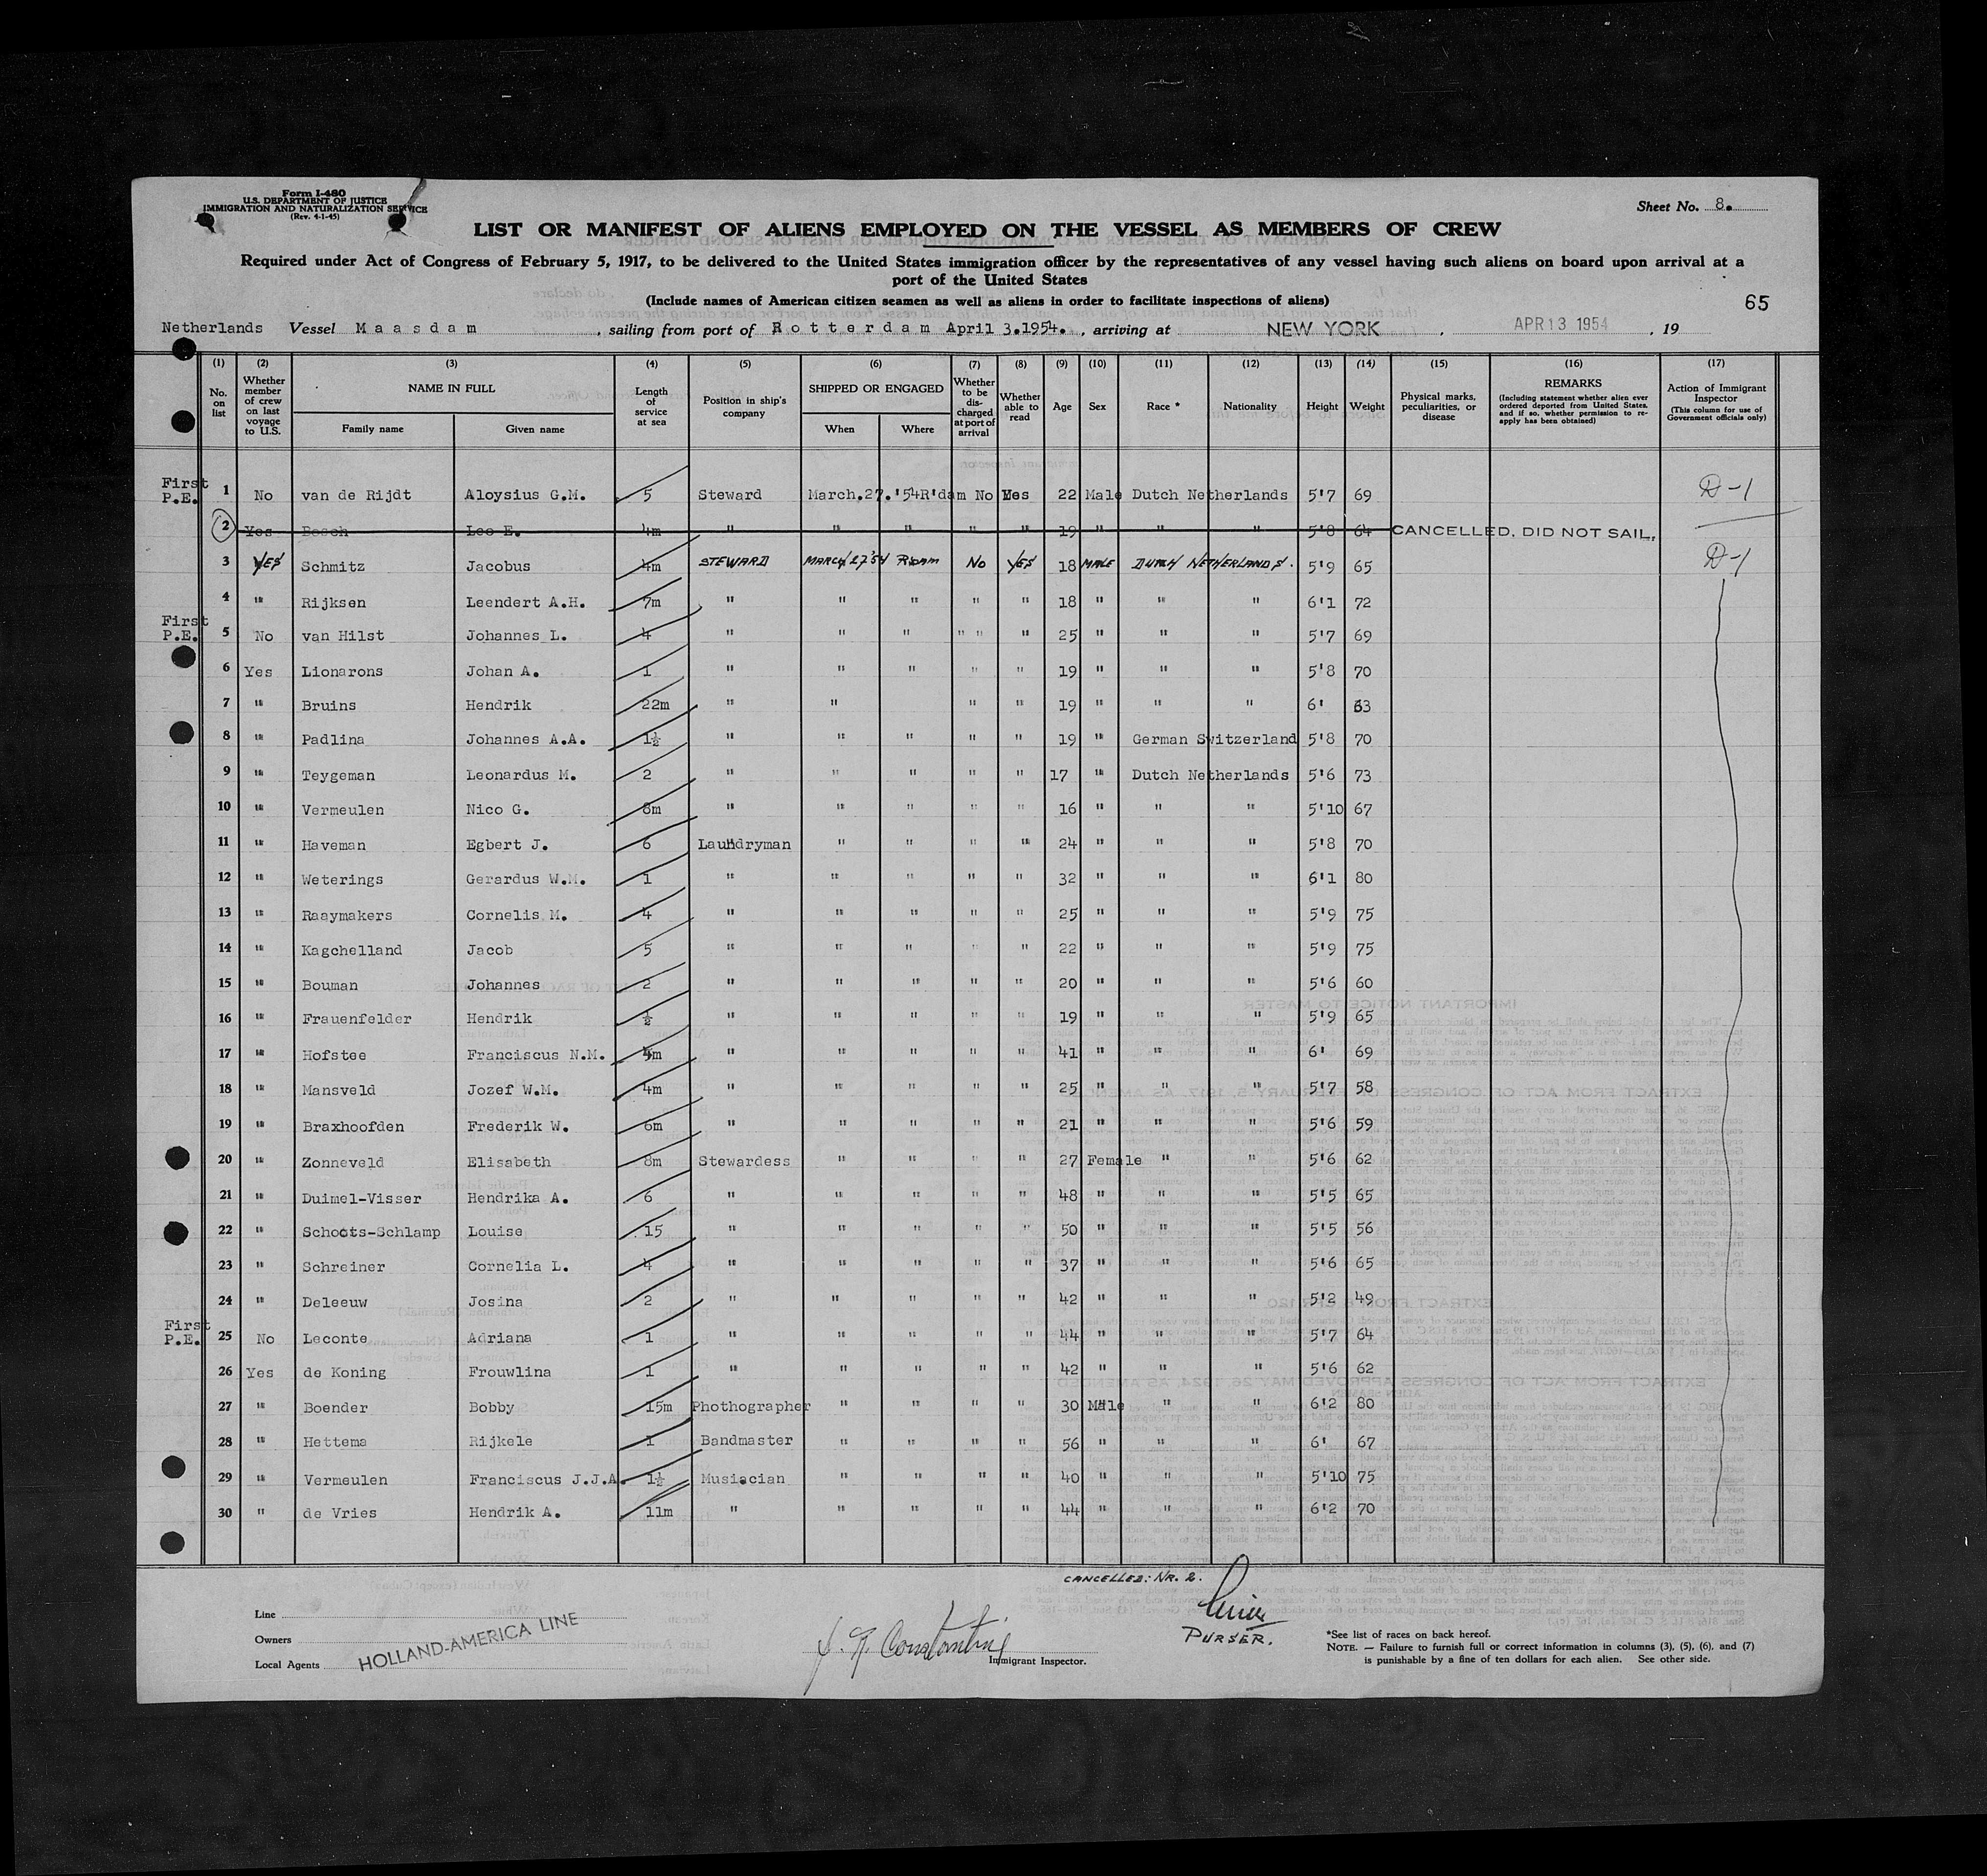 Form I-480
U.S. DEPARTMENT OF JUSTICE
IMMIGRATION AND NATURALIZATION SERVICE
(Rev. 4-1-45)
Sheet No. 8.
LIST OR MANIFEST OF ALIENS EMPLOYED ON THE VESSEL AS MEMBERS OF CREW
Required under Act of Congress of February 5, 1917, to be delivered to the United States immigration officer by the representatives of any vessel having such aliens on board upon arrival at a
port of the United States
(Include names of American citizen seamen as well as aliens in order to facilitate inspections of aliens)
65
Netherlands Vessel Maasdam, sailing from port of Rotterdam April 3.1954., arriving at NEW YORK, APR 13 1954, 19
(1) (2) (3) (4) (5) (6) (7) (8) (9) (10) (11) (12) (13) (14) (15) (16) (17)
No. on list Whether member of crew on last voyage to U.S. NAME IN FULL Family name Given name Length of service at sea Position in ship's company SHIPPED OR ENGAGED When Where Whether to be discharged at port of arrival Whether able to read Age Sex Race * Nationality Height Weight Physical marks, peculiarities, or disease REMARKS (Including statement whether alien ever ordered deported from United States, and if so, whether permission to reapply has been obtained) Action of Immigrant Inspector (This column for use of Government officials only)
First P.E. 1 No van de Rijdt Aloysius G.M. 5 Steward March.27.'54 R'dam No Yes 22 Male Dutch Netherlands 5'7 69 D-1
2 Yes Bosch Leo E. 4m " " " " " 19 " " " 5'8 64 CANCELLED, DID NOT SAIL,
3 YES Schmitz Jacobus 4m STEWARD MARCH 27'54 R'DAM No YES 18 MALE DUTCH NETHERLANDS. 5'9 65 D-1
4 " Rijksen Leendert A.H. 7m " " " " " 18 " " " 6'1 72
First P.E. 5 No van Hilst Johannes L. 4 " " " " " " 25 " " " 5'7 69
6 Yes Lionarons Johan A. 1 " " " " " 19 " " " 5'8 70
7 " Bruins Hendrik 22m " " " " 19 " " " 6' 63
8 " Padlina Johannes A.A. 1½ " " " " " 19 " German Switzerland 5'8 70
9 " Teygeman Leonardus M. 2 " " " " " 17 " Dutch Netherlands 5'6 73
10 " Vermeulen Nico G. 8m " " " " " 16 " " " 5'10 67
11 " Haveman Egbert J. 6 Laundryman " " " " 24 " " " 5'8 70
12 " Weterings Gerardus W.M. 1 " " " " " 32 " " " 6'1 80
13 " Raaymakers Cornelis M. 4 " " " " " 25 " " " 5'9 75
14 " Kagchelland Jacob 5 " " " " " 22 " " " 5'9 75
15 " Bouman Johannes 2 " " " " " 20 " " " 5'6 60
16 " Frauenfelder Hendrik ½ " " " " " 19 " " " 5'9 65
17 " Hofstee Franciscus N.M. 4m " " " " " 41 " " " 6' 69
18 " Mansveld Jozef W.M. 4m " " " " " 25 " " " 5'7 58
19 " Braxhoofden Frederik W. 6m " " " " " 21 " " " 5'6 59
20 " Zonneveld Elisabeth 8m Stewardess " " " " 27 Female " " 5'6 62
21 " Duimel-Visser Hendrika A. 6 " " " " " 48 " " " 5'5 65
22 " Schoots-Schlamp Louise 15 " " " " " 50 " " " 5'5 56
23 " Schreiner Cornelia L. 4 " " " " " 37 " " " 5'6 65
24 " Deleeuw Josina 2 " " " " " 42 " " " 5'2 49
First P.E. 25 No Leconte Adriana 1 " " " " " 44 " " " 5'7 64
26 Yes de Koning Frouwlina 1 " " " " " 42 " " " 5'6 62
27 " Boender Bobby 15m Phothographer " " " " 30 Male " " 6'2 80
28 " Hettema Rijkele 1 Bandmaster " " " " 56 " " " 6' 67
29 " Vermeulen Franciscus J.J.A. 1½ Musician " " " " 40 " " " 5'10 75
30 " de Vries Hendrik A. 11m " " " " " 44 " " " 6'2 70
CANCELLED: NR. 2.
Line
Owners
Local Agents
HOLLAND-AMERICA LINE
Constantine
Immigrant Inspector.
PURSER.
*See list of races on back hereof.
NOTE. — Failure to furnish full or correct information in columns (3), (5), (6), and (7)
is punishable by a fine of ten dollars for each alien. See other side.